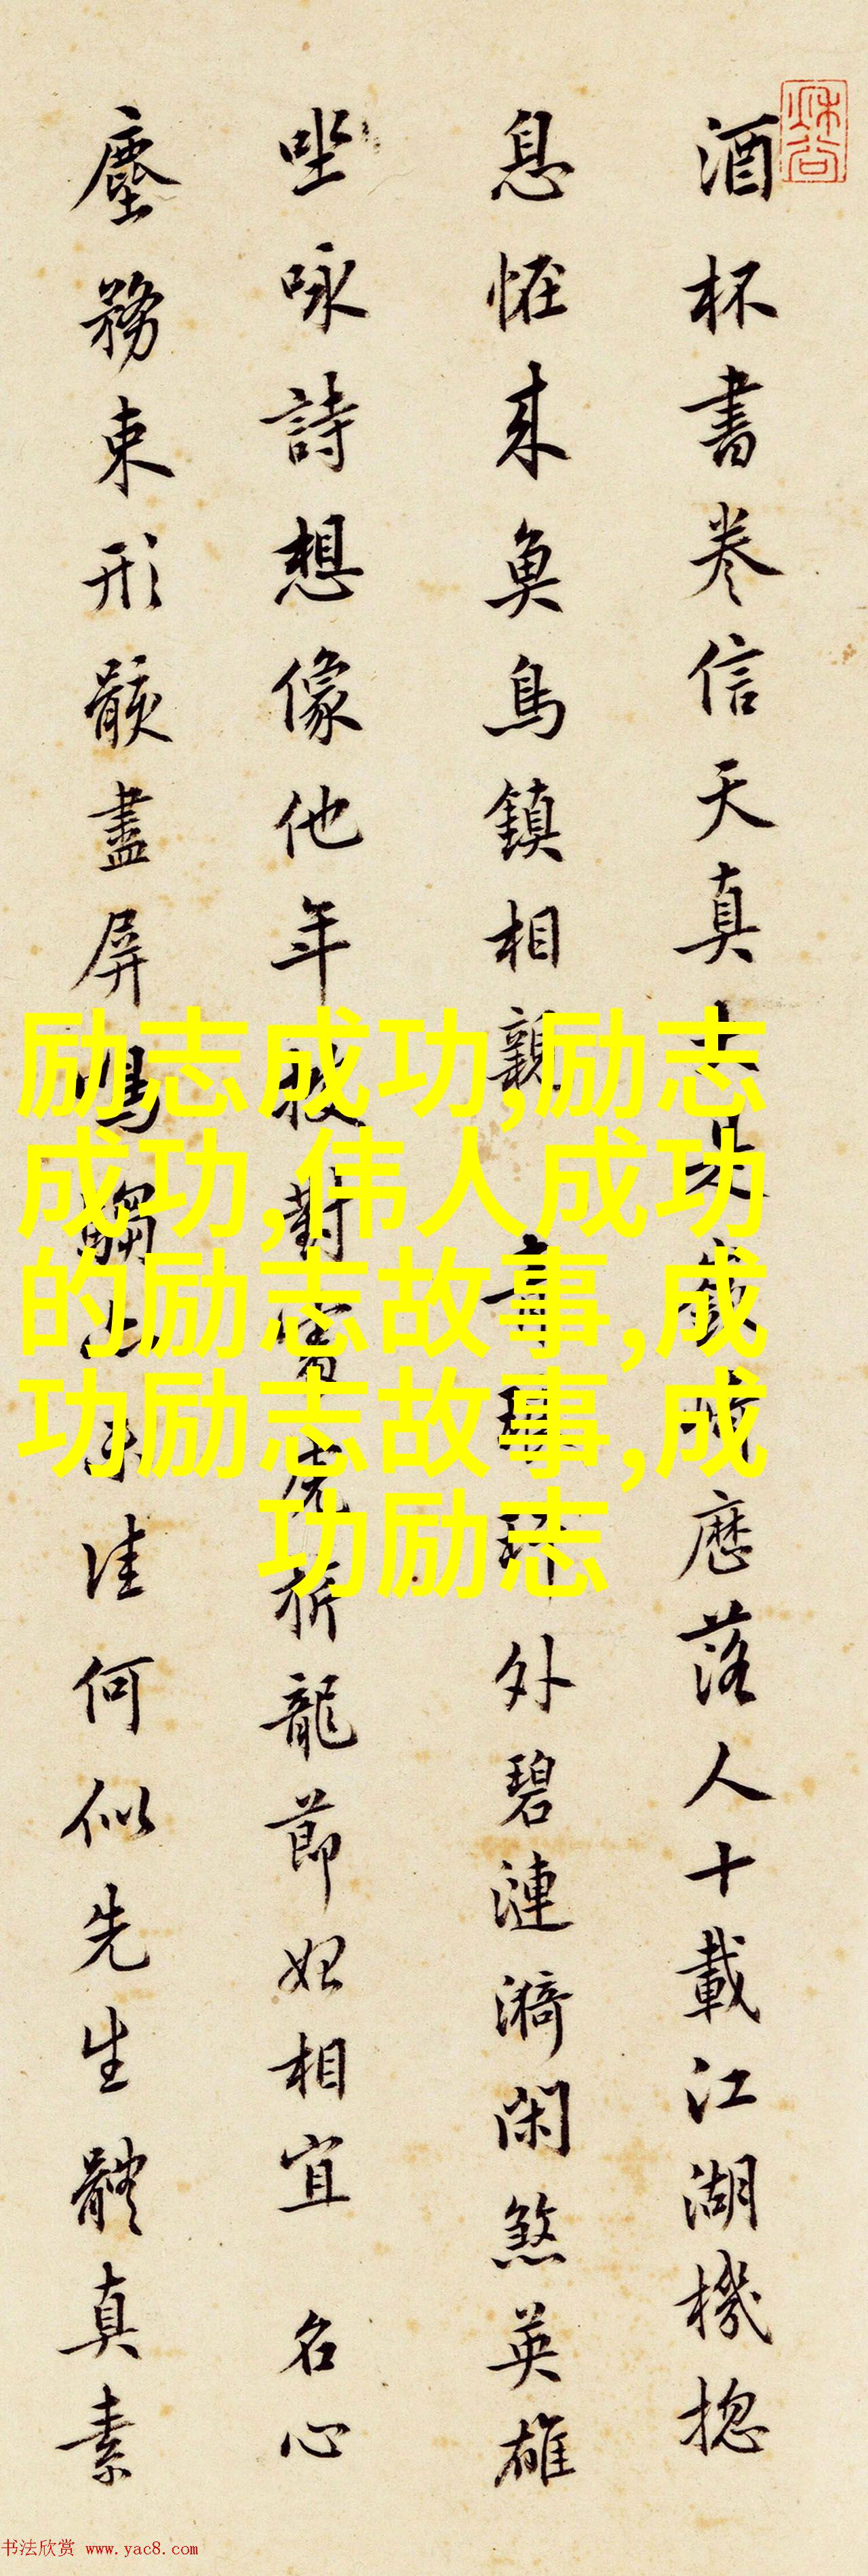 酒杯書卷信天真
歷落人十載江湖機揔
息恠來魚鳥鎮相親
外碧漣漪閑煞英雄
坐咏詩想像他年
對
祈龍節妃相宜名心
塵務束形骸盡屏
佳何似先生體真素
励志成功,励志
成功,伟人成功
的励志故事,成
功励志故事,成
功励志
书法欣赏 www.yac8.com